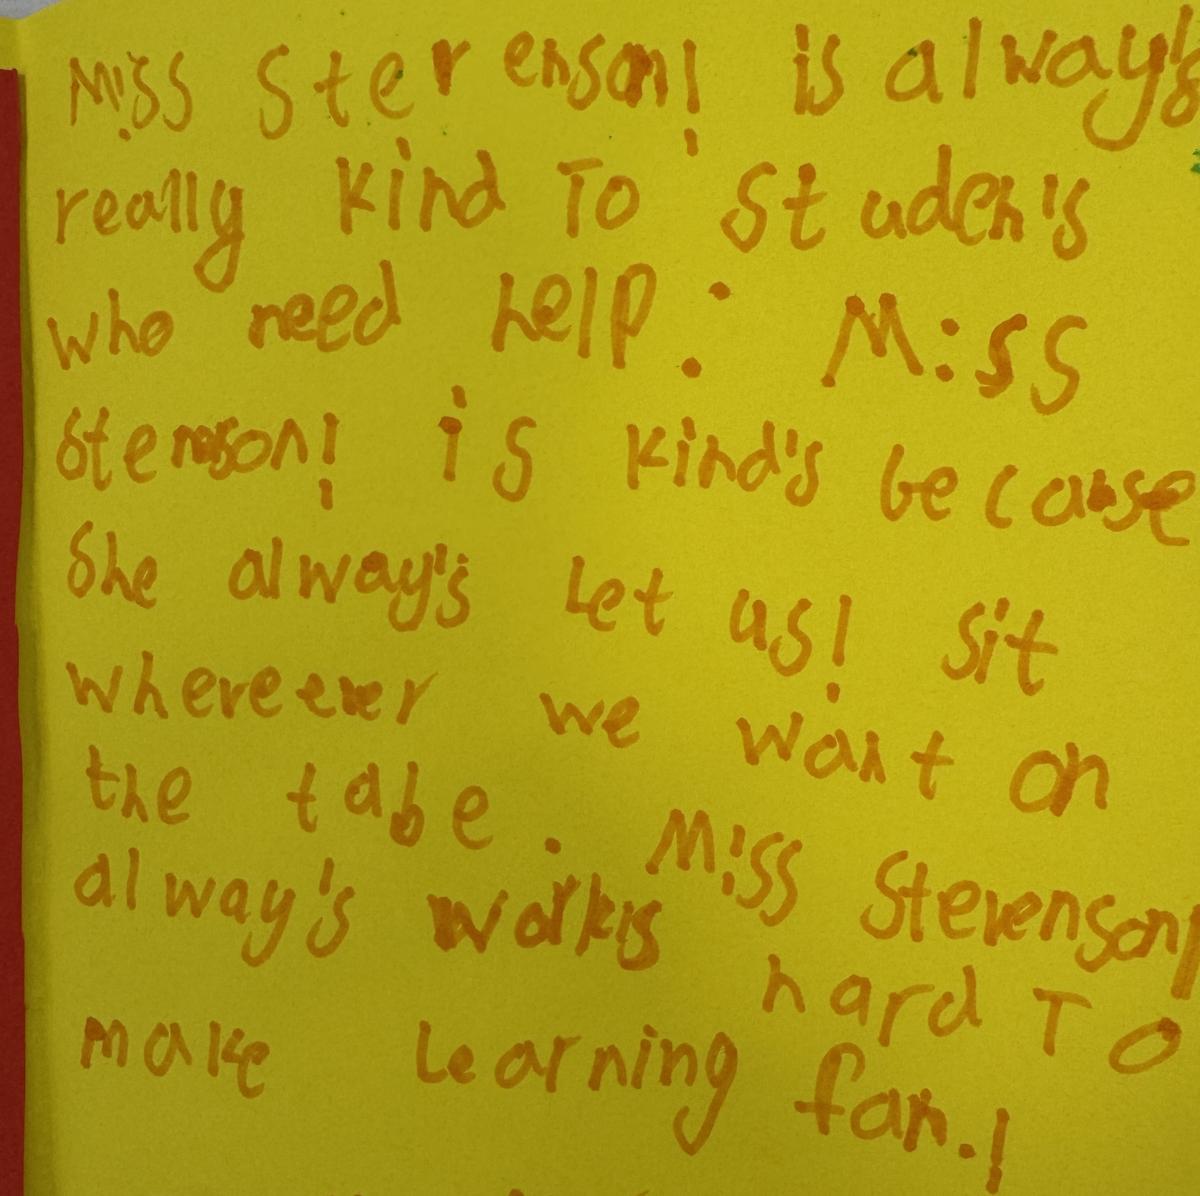 Miss Sterenson! is always's
really kind To studen's
who need help. Miss
Stenson! is kind's because
She alway's Let us! sit
whereever we want on
the tabe. Miss Stevenson!
alway's works hard To
make Learning fan.!